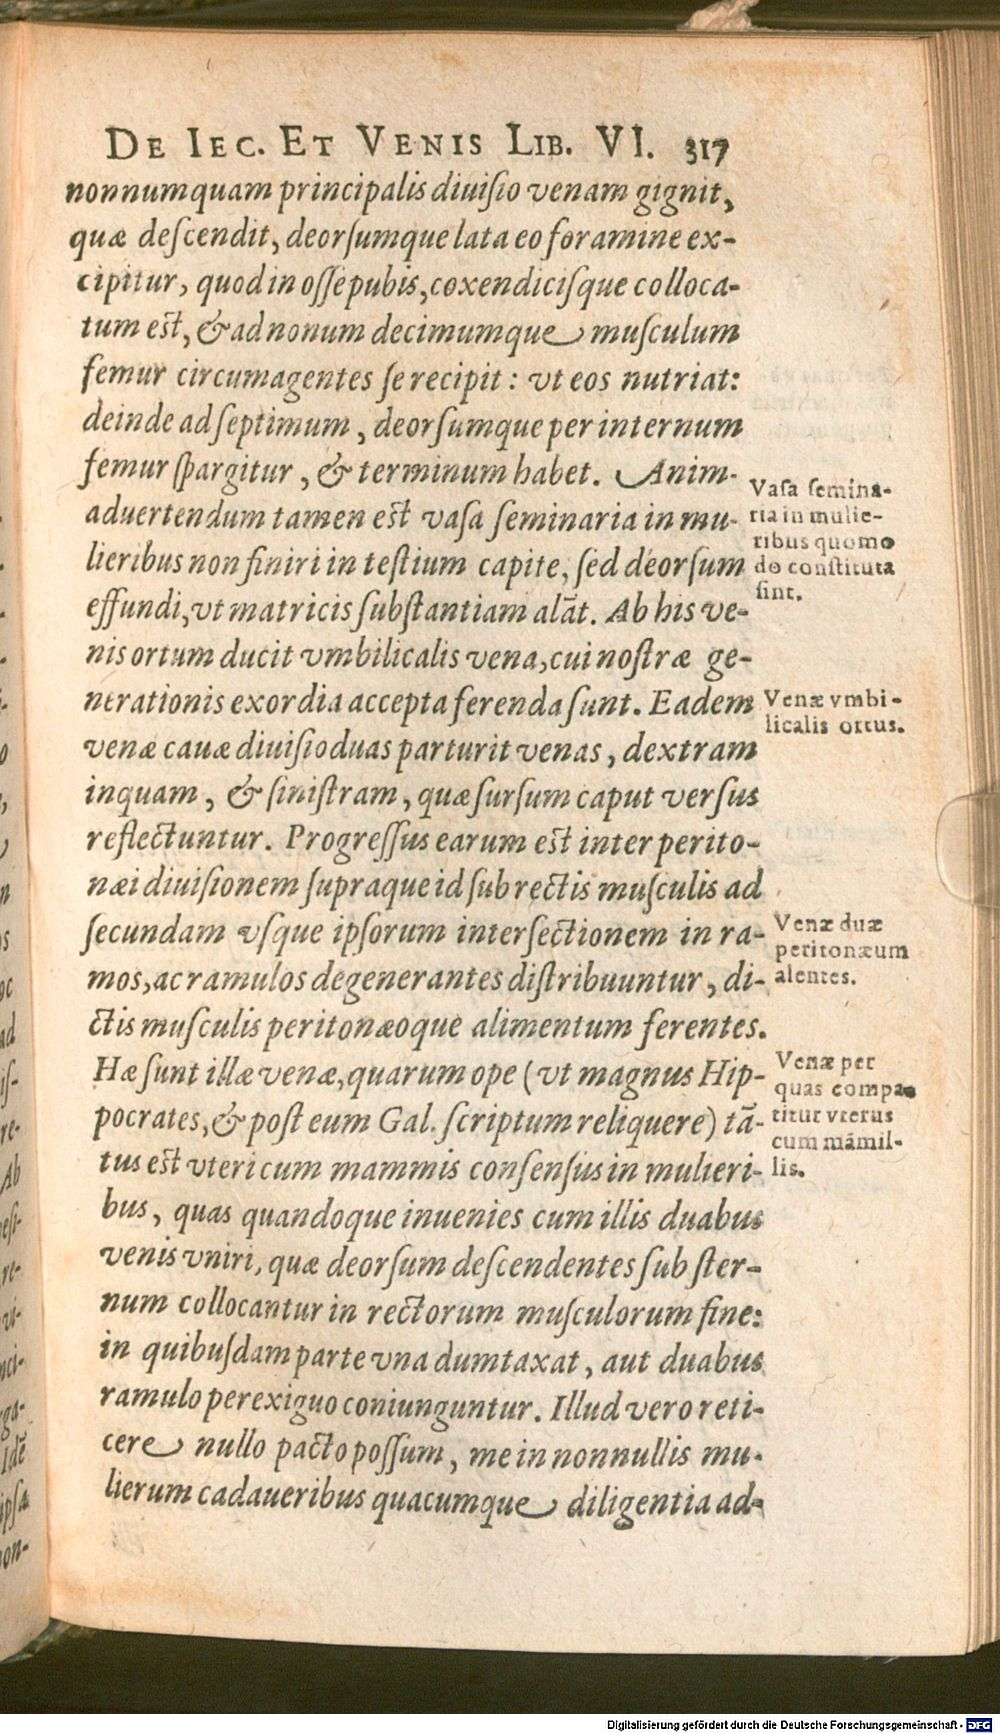 DE IEC. ET VENIS LIB. VI. 317
nonnumquam principalis diuiſio venam gignit,
quæ deſcendit, deorſumque lata eo foramine ex-
cipitur, quod in oſſe pubis, coxendiciſque colloca-
tum est, & ad nonum decimumque muſculum
femur circumagentes ſe recipit: vt eos nutriat:
deinde ad ſeptimum, deorſumque per internum
femur ſpargitur, & terminum habet. Anim-
aduertendum tamen est vaſa ſeminaria in mu-
lieribus non finiri in teſtium capite, ſed deorſum
effundi, vt matricis ſubſtantiam alāt. Ab his ve-
nis ortum ducit vmbilicalis vena, cui noſtræ ge-
nerationis exordia accepta ferenda ſunt. Eadem
venæ cauæ diuiſio duas parturit venas, dextram
inquam, & ſiniſtram, quæ ſurſum caput verſus
reflectuntur. Progreſſus earum est inter perito-
næi diuiſionem ſupraque id ſub rectis muſculis ad
ſecundam vſque ipſorum interſectionem in ra-
mos, ac ramulos degenerantes diſtribuuntur, di-
ctis muſculis peritonæoque alimentum ferentes.
Hæ ſunt illæ venæ, quarum ope (vt magnus Hip-
pocrates, & poſt eum Gal. ſcriptum reliquere) tā-
tus est vteri cum mammis conſenſus in mulieri-
bus, quas quandoque inuenies cum illis duabus
venis vniri, quæ deorſum deſcendentes ſub ſter-
num collocantur in rectorum muſculorum fine:
in quibuſdam parte vna dumtaxat, aut duabus
ramulo perexiguo coniunguntur. Illud vero reti-
cere nullo pacto poſſum, me in nonnullis mu-
lierum cadaueribus quacumque diligentia ad-
Vaſa ſemina-
ria in mulie-
ribus quomo
do conſtituta
ſint.
Venæ vmbi-
licalis ortus.
Venæ duæ
peritonæum
alentes.
Venæ per
quas compa-
titur vterus
cum māmil-
lis.
Digitalisierung gefördert durch die Deutsche Forschungsgemeinschaft - DFG